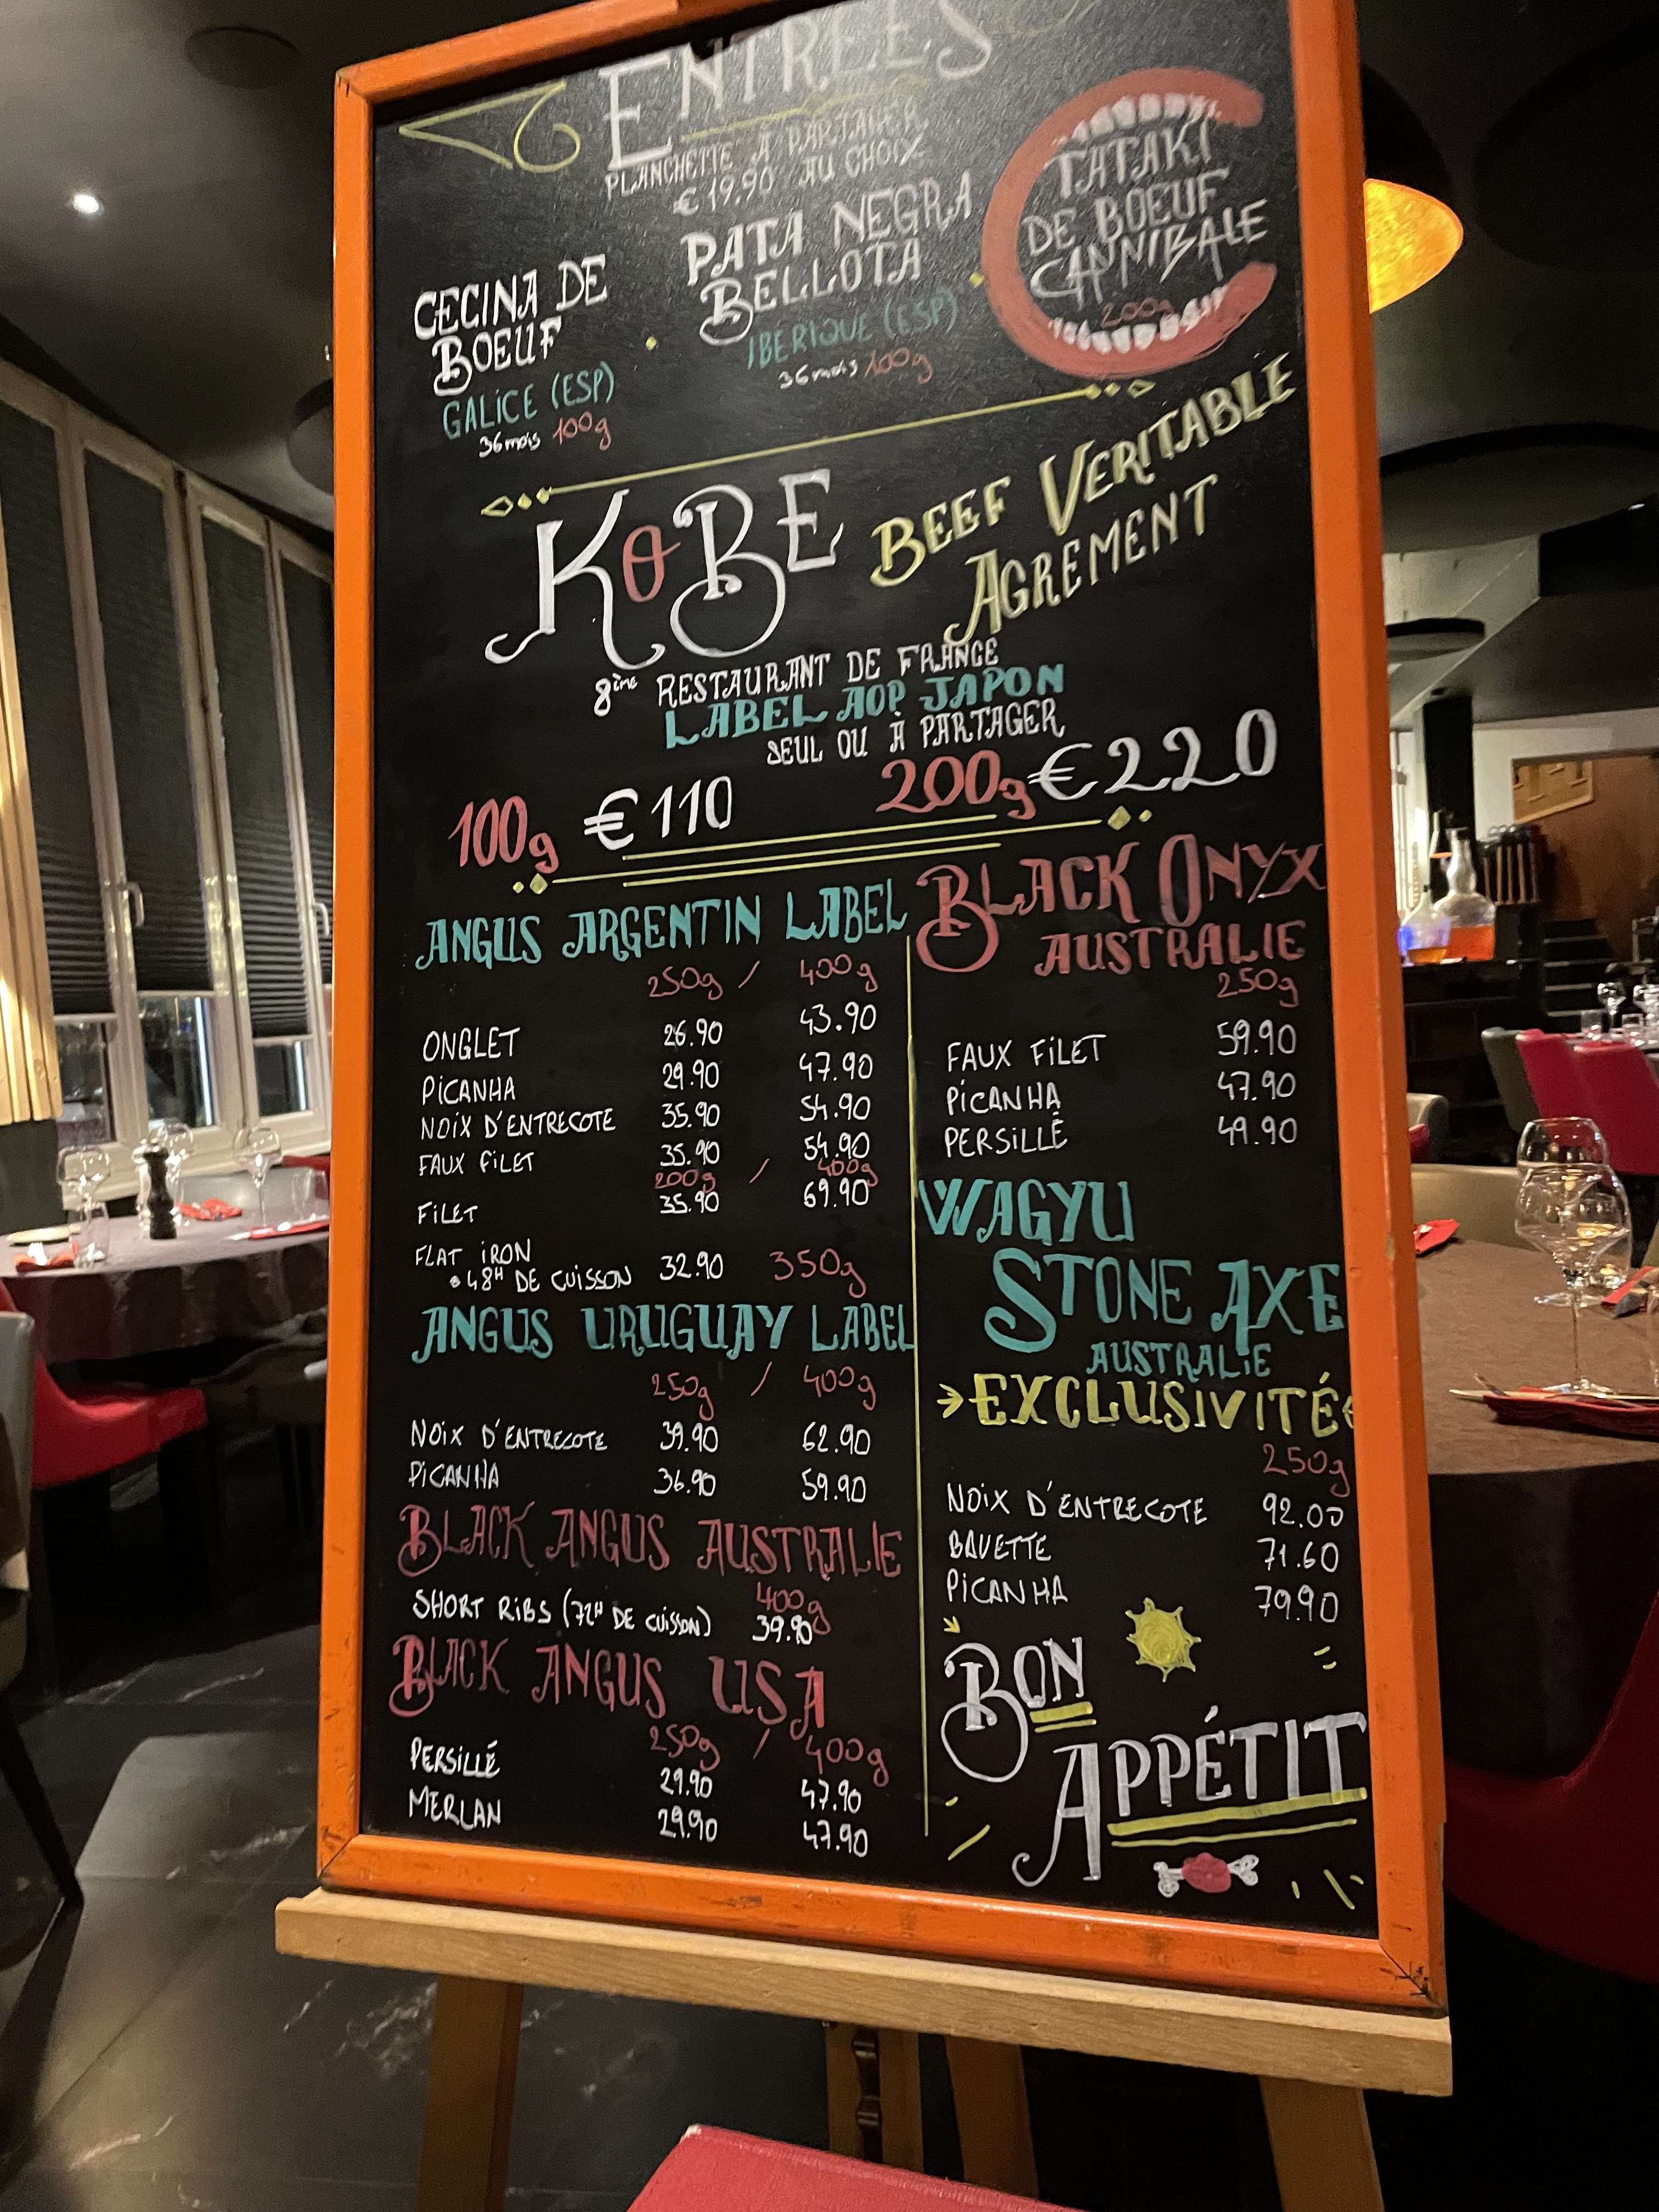 ENTRÉES
PLANCHETTE À PARTAGER
€ 19.90 AU CHOIX
CECINA DE
BOEUF
GALICE (ESP)
36 mois 100g
PATA NEGRA
BELLOTA
IBERIQUE (ESP)
36 mois 100g
TATAKI
DE BOEUF
CANNIBALE
200g
KOBE BEEF VERITABLE
AGREMENT
8ème RESTAURANT DE FRANCE
LABEL AOP JAPON
SEUL OU À PARTAGER
100g €110 200g €220
ANGUS ARGENTIN LABEL
250g / 400g
ONGLET 26.90 43.90
PICANHA 29.90 47.90
NOIX D'ENTRECOTE 35.90 54.90
FAUX FILET 35.90 54.90
200g / 400g
FILET 35.90 69.90
FLAT IRON
48H DE CUISSON 32.90 350g
ANGUS URUGUAY LABEL
250g / 400g
NOIX D'ENTRECOTE 39.90 62.90
PICANHA 36.90 59.90
BLACK ANGUS AUSTRALIE
400g
SHORT RIBS (72H DE CUISSON) 39.90
BLACK ANGUS USA
250g / 400g
PERSILLÉ 29.90 47.90
MERLAN 29.90 47.90
BLACK ONYX
AUSTRALIE
250g
FAUX FILET 59.90
PICANHA 47.90
PERSILLÉ 49.90
WAGYU
STONE AXE
AUSTRALIE
EXCLUSIVITÉ
250g
NOIX D'ENTRECOTE 92.00
BAVETTE 71.60
PICANHA 79.90
BON
APPÉTIT